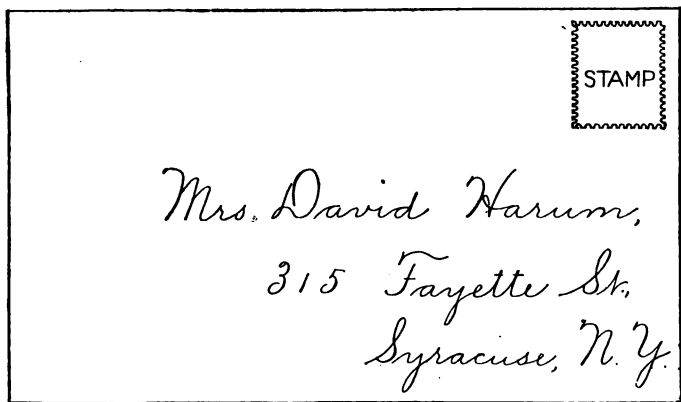 STAMP
Mrs. David Harum,
315 Fayette St.,
Syracuse, N.Y.